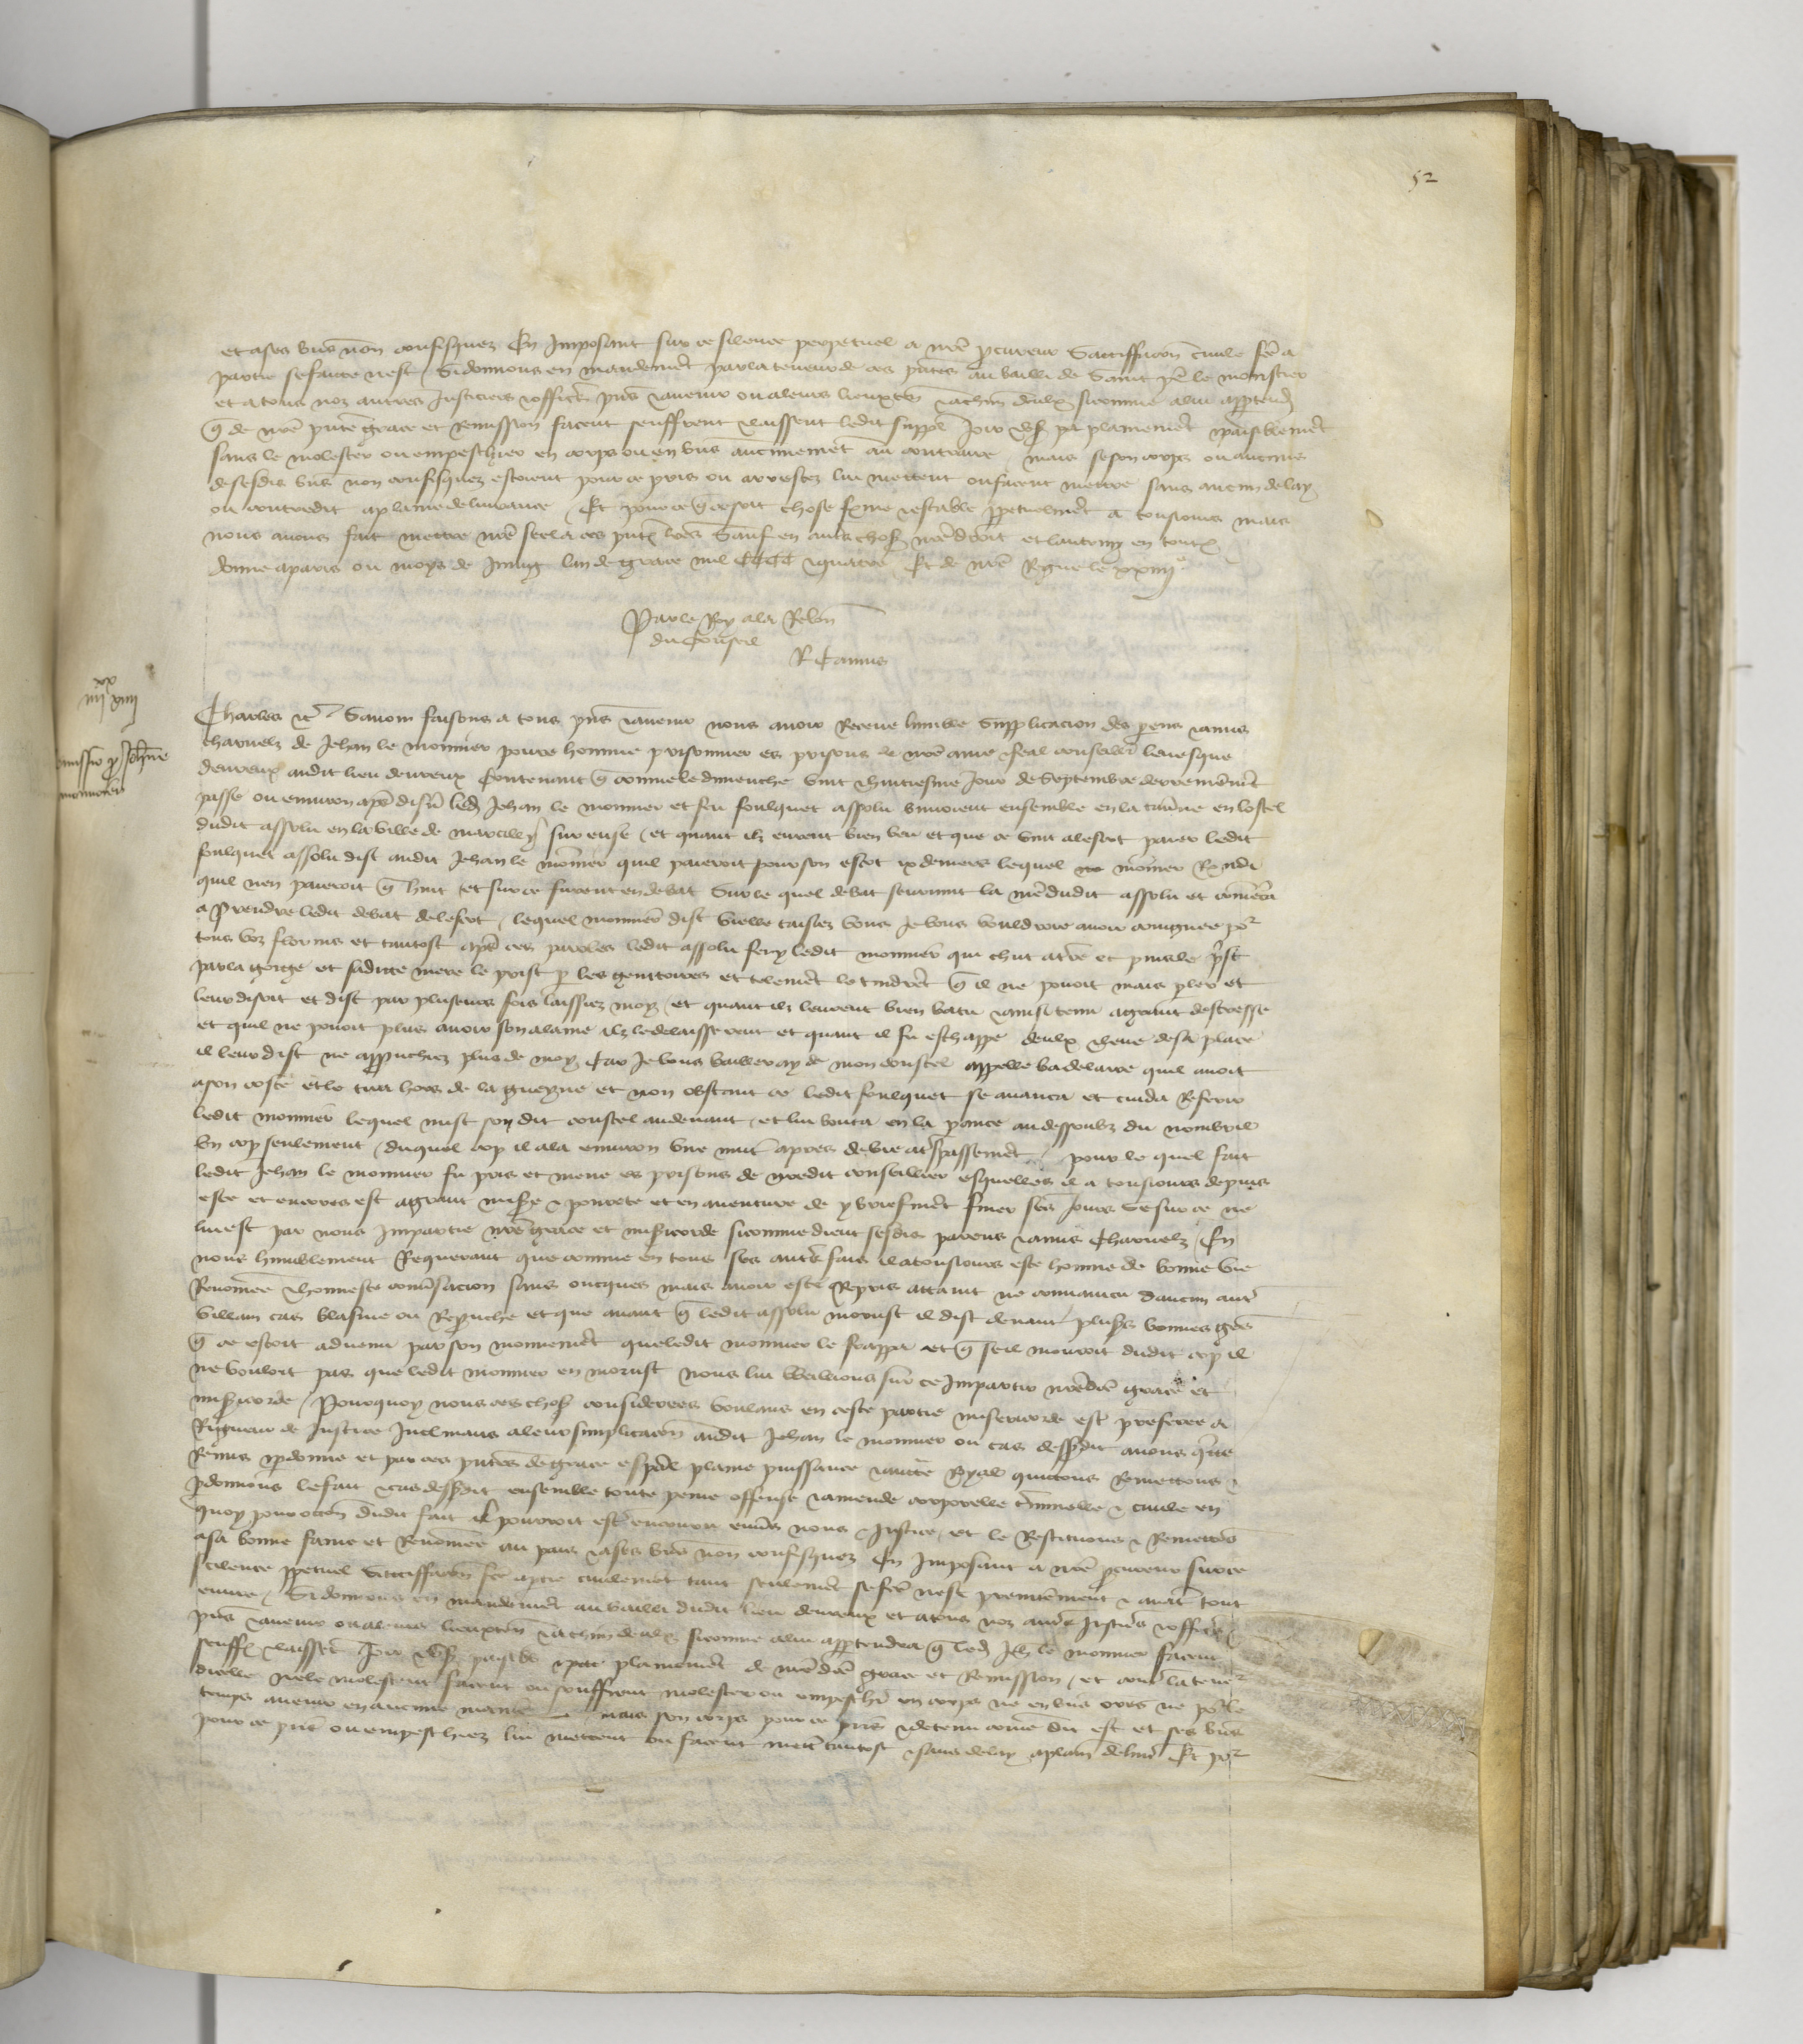 52
et a ses biens non confisquez En imposant sur ce silence perpetuel a nre procureur Satiffacion civile fce a
partie se faicte nest Si donnons en mandement par la teneur de ces pntes au bailli de Saint pe le monstier
et a tous noz autres Justiciers & officiers pns & avenir ou a leurs lieuxten & a chun deulx sicomme a lui appartendra
q de nre pnte grace et remission facent seuffrent & laissent ledit suppl Joir & user plainement & paisiblement
sans le molester ou empeschier en corps ou en biens aucunement au contraire mais se son corps ou aucuns
de sesdis biens non confisquez estoient pour ce pris ou arrestez lui mettent ou facent mettre sans aucun delay
ou contredit a plaine delivrance Et pour ce q ce soit chose ferme & estable perpetuelment a tousiours mais
nous avons fait mettre nre scel a ces pntes lres Sauf en autres choses nre droit et lautruy en toutes
donne a paris ou moys de Juing lan de grace mil CCCC & quatre Et de nre Regne le xxiiiie
Par le Roy a la Relon
du Conseil
R Camus
iiii xx xiiii
Remissio pro Johanne
monnier
Charles &c Savoir faisons a tous pns & avenir nous avoir Receue lumble Supplicacion des parens & amis
charnelz de Jehan le monnier povre homme prisonnier es prisons de nre ame & feal conseiller levesque
devreux audit lieu devreux Contenant q comme le dimenche vint & huitiesme Jour de Septembre derrenierement
passe ou environ apres disner ledit Jehan le monnier et feu foulquet assolu buvoient ensemble en la taverne en lostel
dudit assolu en la ville de marcilly sur eure et quant ilz eurent bien beu et que ce vint a lescot paier ledit
foulquet assolu dist audit Jehan le monnier quil paieroit pour son escot ix deniers lequel monnier Respondi
quil nen paieroit q huit et sur ce furent en debat Sur le quel debat seurvint la mere dudit assolu et comenca
a prendre ledit debat de lescot lequel monnier dist vielle taisiez vous Je vous vouldroie avoir congnee por
tous voz florins et tantost apres ces paroles ledit assolu fery ledit monnier qui chut a terre et puis le prist
par la gorge et sadicte mere le prist p les genitoires et telement le tindrent q il ne povoit mais parler et
leur disoit et dist par plusieurs fois laissiez moy et quant ilz leurent bien batu & ainsi tenu a grant destresse
et quil ne povoit plus avoir son alaine ilz le delaisserent et quant il fu eschappe deulx & leve de sa place
il leur dist ne approuchiez plus de moy Car Je vous bailleray de mon coustel appelle badelaire quil avoit
a son coste et le tira hors de la gueyne et non obstant ce ledit foulquet se avanca et cuida Referir
ledit monnier lequel mist son dit coustel audevant et lui bouta en la pance au dessoubz du nombril
un cop seulement duquel cop il ala environ une nuit apres de vie a trespassement pour le quel fait
ledit Jehan le monnier fu pris et mene es prisons de nredit conseillier esquelles il a tousiours depuis
este et encores est a grant misere & povrete et en aventure de y briefment finer ses Jours Se sur ce ne
lui est par nous Impartie nre grace et misericorde si comme dient sesdis parens & amis Charnelz En
nous humblement Requerant que comme en tous ses autres fais il a tousiours este homme de bonne vie
Renommee & honneste conversacion sans oncques mais avoir este Repris attaint ne convaincu daucun autre
villain cas blasme ou Reprouche et que avant q ledit assolu morust il dist devant plusieurs bonnes gens
q ce estoit advenu par son mouvement que ledit monnier le frappa et q seil mouroit dudit cop il
ne vouloit pas que ledit monnier en morust nous lui vueillions sur ce Impartir nredce grace et
misericorde Pourquoy nous ces choses considerees voulans en ceste partie misericorde estre preferee a
Rigueur de Justice Inclinans a leur supplicacion audit Jehan le monnier ou cas dessusdit avons quicte
Remis & pdonne et par ces pntes de grace especial plaine puissance & aucte Royal quictons Remettons &
pdonnons le fait & cas dessusdit ensemble toute peine offense & amende corporelle criminelle & civile en
quoy pour occon dudit fait il pourroit estre encouru envers nous & Justice et le Restituons & Remettons
a sa bonne fame et Renommee au pais & a ses biens non confisquez En Imposant a nre procureur sur ce
scilence ppetuel Satiffacion fce a ptie civilement tant seulement se fce nest premierement & avant tout
euvre Si donnons en mandement au bailli dudit lieu devreux et a tous noz autres Justiciers & officiers
pns & avenir ou a leurs lieuxten & a chun deulx sicomme a lui appartendra q ledit Jeh le monnier facent
seuffrent & laissent Joir & user paisible & plainement de nredce grace et Remission et contre la teneur
dicelle ne le molestent facent ou seuffrent molester ou empeschier en corps ne en biens ores ne pour le
temps avenir en aucune maniere mais son corps pour ce pris & detenu come dit est et ses biens
pour ce pris ou empeschiez lui mettent ou facent mettre tantost & sans delay a plain delivre Et por